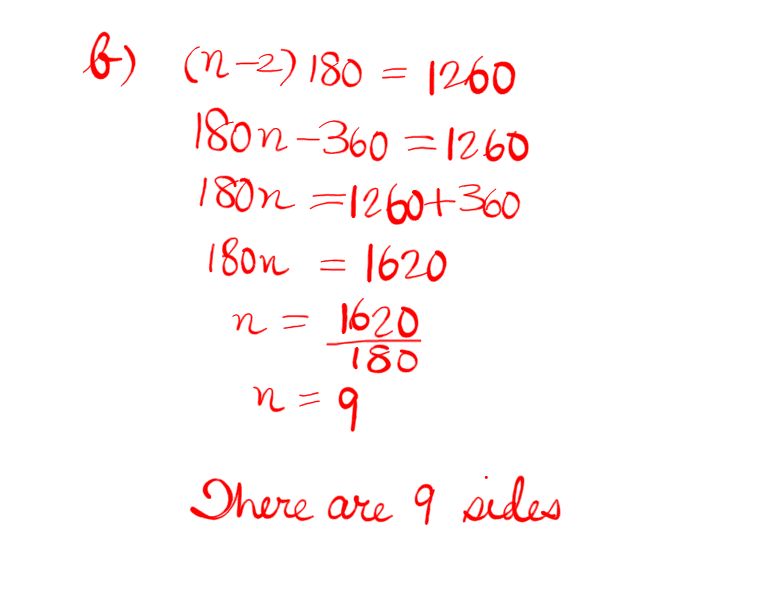 b) (n-2) 180 = 1260
180n - 360 = 1260
180n = 1260 + 360
180n = 1620
n = 1620
180
n = 9
There are 9 sides